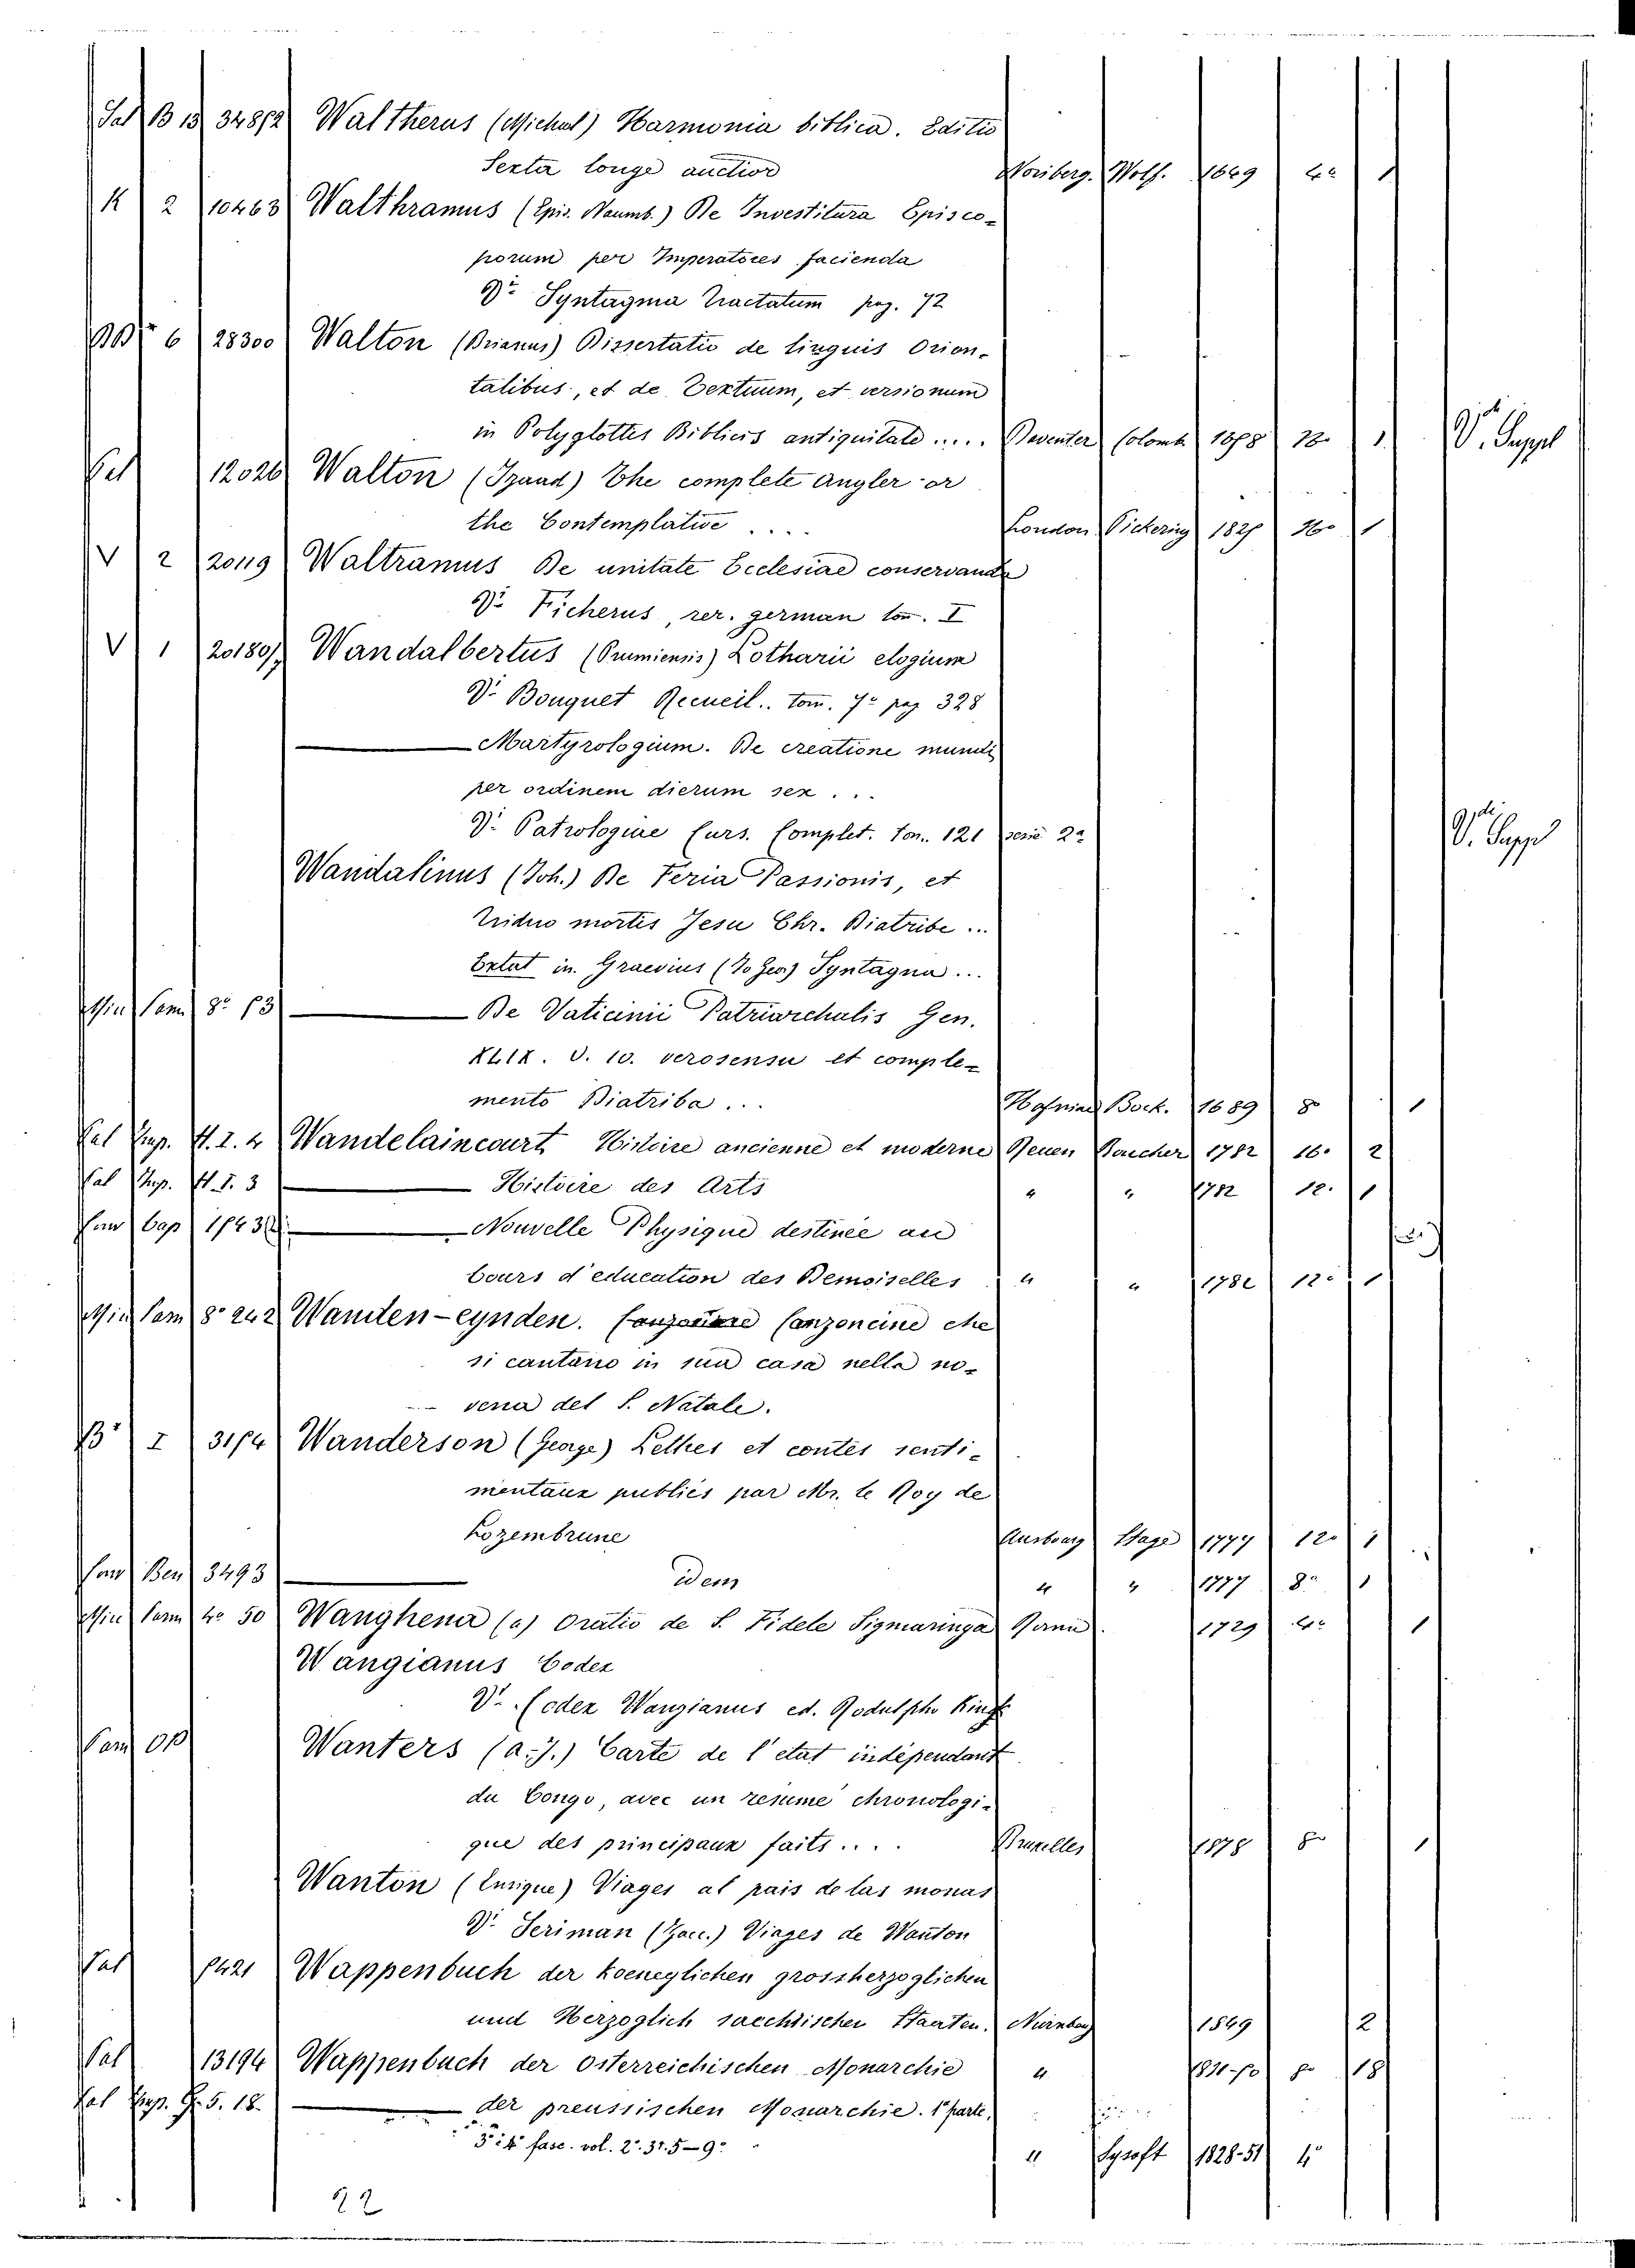 Sal B 13 348/2 Waltherus (Michael) Harmonia biblica. Editio
Sexta longe auctior Noriberg. Wolf. 1649 4º 1
K 2 10463 Walthramus (Epis. Naumb.) De Investitura Episco-
porum per Imperatores facienda
Vº Syntagma Tractatum pag. 72
6 28300 Walton (Brianus) Dissertatio de linguis Orien-
talibus, et de Textuum, et versionum
in Polyglottis Bibliis antiquitate ..... Deventer Colomb 12º 1 Vdi Suppl
Sal 12026 Walton (Izaad) The complete Angler or
the Contemplative .... London Pickering 1825 16º 1
V 2 20119 Waltramus De unitate Ecclesiae conservanda
Vº Ficherus, rer. german tom. I
V 1 20180/7 Wandalbertus (Prumiensis) Lotharii elogium
Vº Bouquet Recueil.. tom. 7º pag 328
Martyrologium. De creatione mundi
per ordinem dierum sex ...
Vº Patrologiae Curs. Complet. tom. 121 serie 2ª Vdi Suppl
Wandalinus (Joh.) De Feria Passionis, et
Triduo mortis Jesu Chr. Diatribe ...
Extat in Graevius (Jo Geor) Syntagma ...
Min Cam 8º 53 De Vaticinii Patriarchalis Gen.
XLIX. v. 10. vero sensu et comple-
mento Diatriba ... Hofniae Bock. 1689 8º 1
Sal Imp. H. I. 4 Wandelaincourt Histoire ancienne et moderne Rouen Boucher 1782 16º 2
Sal Imp. H. I. 3 Histoire des Arts " " 1782 12º 1
Cam Cap 1543 Nouvelle Physique destinée au
Cours d'education des Demoiselles " " 1782 12º 1
Min Cam 8º 242 Wanden-eynden. Canzoneine che
si cantano in sua casa nella no-
vena del S. Natale.
I 3154 Wanderson (George) Lettres et contes senti-
mentaux publiés par Mr. le Roy de
Lozembrune Ausbourg Stage 1777 12º 1
Cam Ben 3493 idem " " 1777 8º 1
Min Cam 4º 50 Wanghena (a) Oratio de S. Fidele Sigmaringa 1729 4º 1
Wangianus Codex
Vº Codex Wangianus ed. Rodulpho Kink
Wanters (A. J.) Carte de l'etat indépendant
du Congo, avec un resumé chronologi-
que des principaux faits .... Bruxelles 8º 1
Wanton (Enrique) Viages al pais de las monas
Vº Seriman (Zacc.) Viages de Wanton
Sal 5421 Wappenbuch der koeneglichen grossherzoglichen
und Herzoglich saechsischer Staaten. Nürnberg 1849 2
Sal 13194 Wappenbuch der Osterreichischen Monarchie " 1831-50 8º 18
Sal Imp. G. 5. 18. der preussischen Monarchie. 1ª parte,
3º:4º fasc. vol. 2º. 3º. 5-9º " Tyroff 1828-51 4º
22